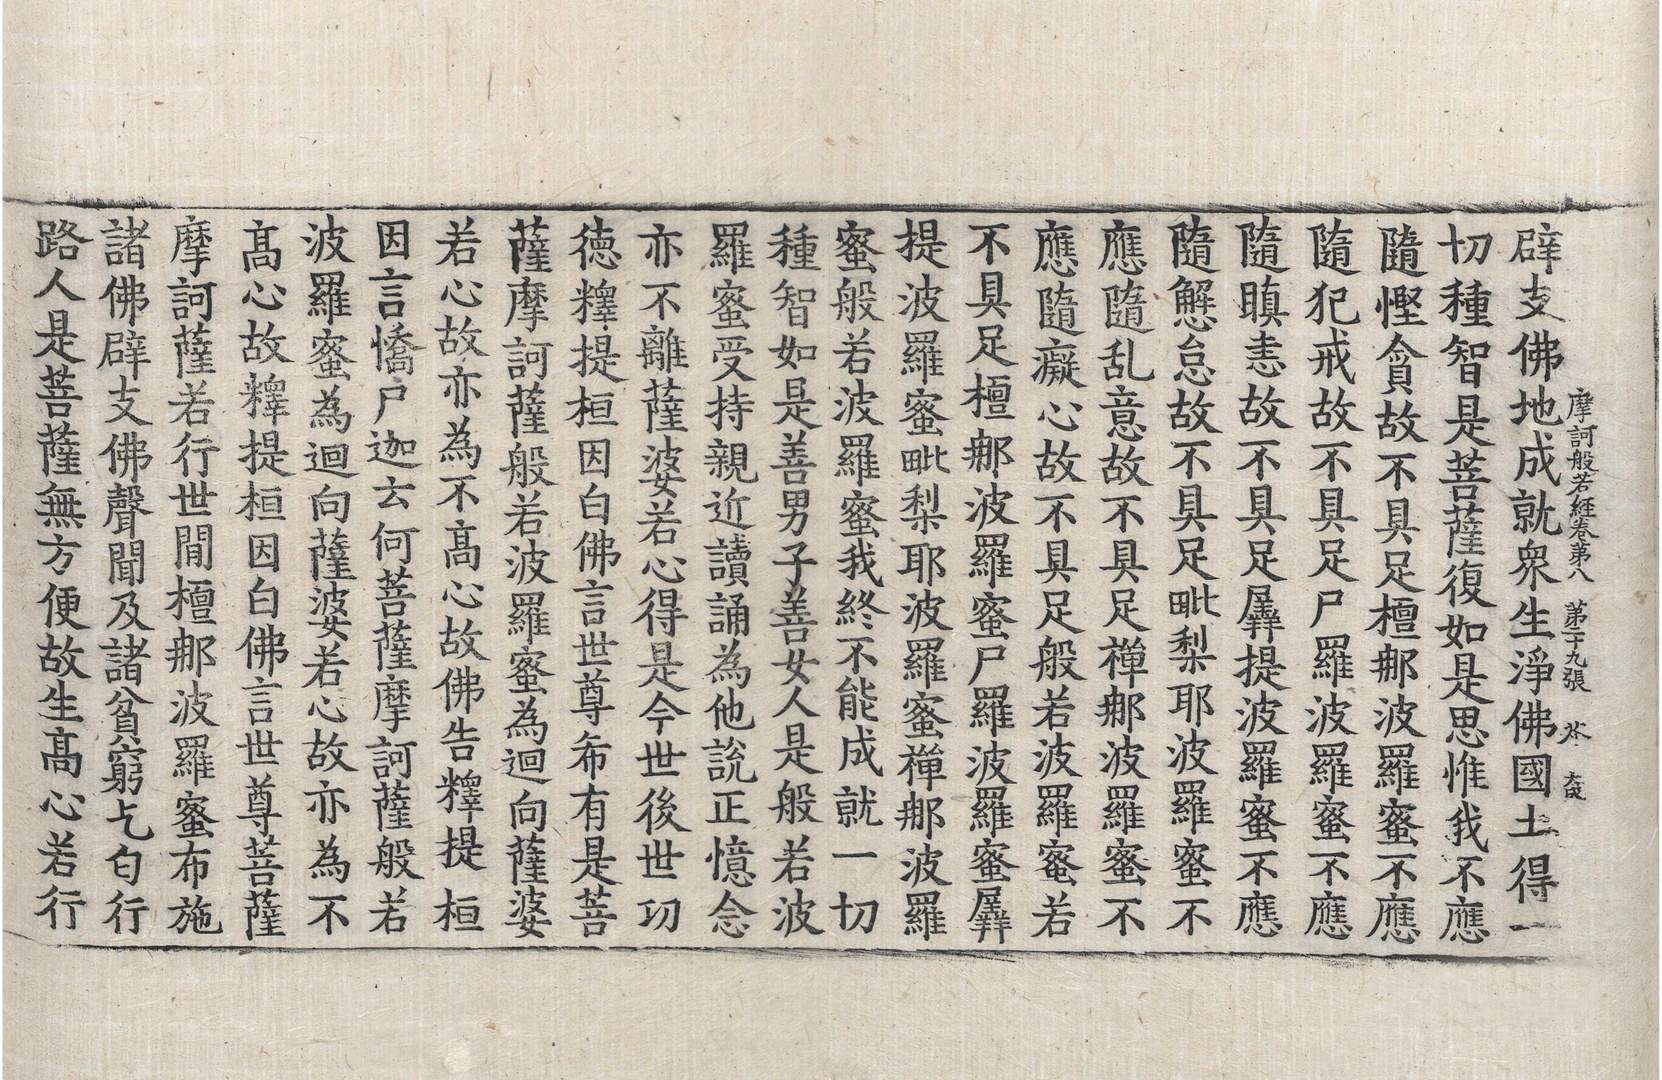 摩訶般若經卷第八　第二十九張
辟支佛地成就衆生淨佛國土得一
切種智是菩薩復如是思惟我不應
隨慳貪故不具足檀𨙻波羅蜜不應
隨犯戒故不具足尸羅波羅蜜不應
隨瞋恚故不具足羼提波羅蜜不應
隨懈怠故不具足毗梨耶波羅蜜不
應隨乱意故不具足禪𨙻波羅蜜不
應隨癡心故不具足般若波羅蜜若
不具足檀𨙻波羅蜜尸羅波羅蜜羼
提波羅蜜毗梨耶波羅蜜禪𨙻波羅
蜜般若波羅蜜我終不能成就一切
種智如是善男子善女人是般若波
羅蜜受持親近讀誦為他說正憶念
亦不離薩婆若心得是今世後世功
德釋提桓因白佛言世尊希有是菩
薩摩訶薩般若波羅蜜為迴向薩婆
若心故亦為不髙心故佛告釋提桓
因言憍尸迦云何菩薩摩訶薩般若
波羅蜜為迴向薩婆若心故亦為不
髙心故釋提桓因白佛言世尊菩薩
摩訶薩若行世閒檀𨙻波羅蜜布施
諸佛辟支佛聲聞及諸貧窮乞匃行
路人是菩薩無方便故生髙心若行